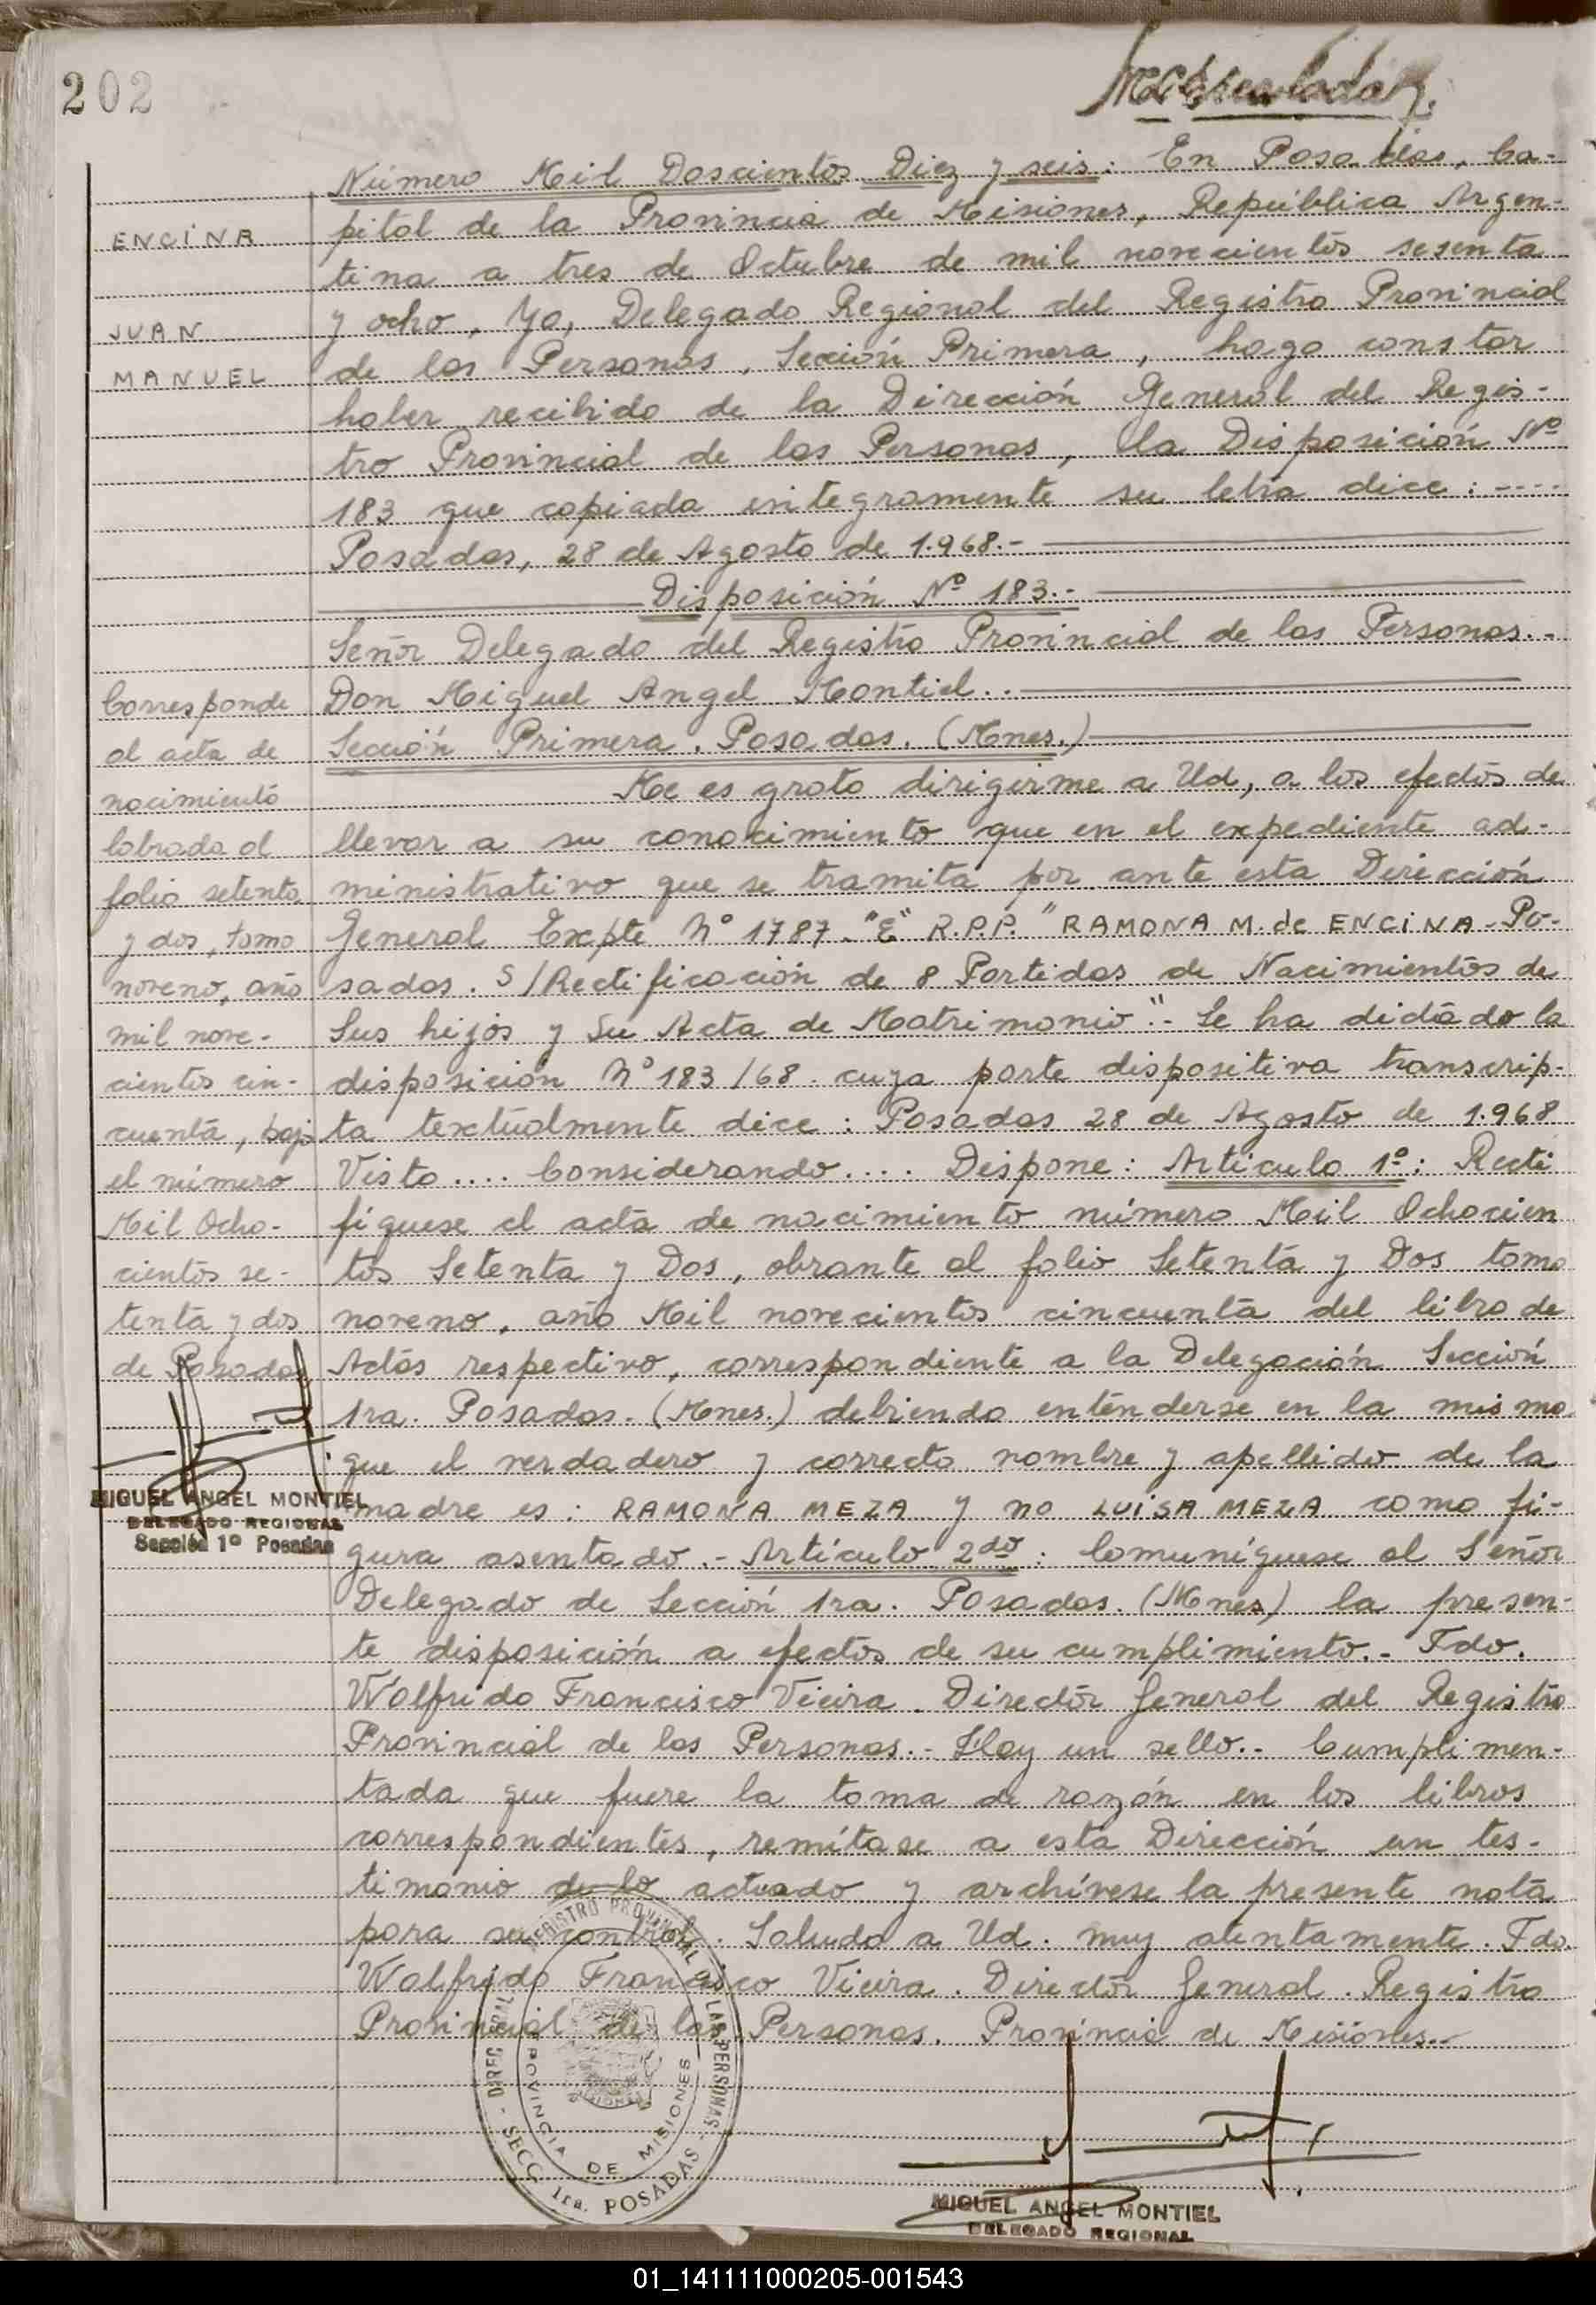 202
Número Mil Doscientos Diez y seis: En Posadas, Ca-
pital de la Provincia de Misiones, República Argen-
tina a tres de Octubre de mil novecientos sesenta
y ocho, Yo, Delegado Regional del Registro Provincial
de las Personas, Sección Primera, hago constar
haber recibido de la Dirección General del Regis-
tro Provincial de las Personas, la Disposición Nº
183 que copiada integramente su letra dice: ----
Posadas, 28 de Agosto de 1.968.-
Disposición Nº 183.-
Señor Delegado del Registro Provincial de las Personas.-
Don Miguel Angel Montiel..
Sección Primera. Posadas. (Mnes.)
Me es grato dirigirme a Ud, a los efectos de
llevar a su conocimiento que en el expediente ad-
ministrativo que se tramita por ante esta Dirección
General Expte Nº 1787. "E" R.P.P. "RAMONA M. de ENCINA - Po-
sadas. S/Rectificación de 8 Partidas de Nacimientos de
Sus hijos y Su Acta de Matrimonio".- Se ha dictado la
disposición Nº 183/68. cuya parte dispositiva transcrip-
ta textualmente dice: Posadas 28 de Agosto de 1.968
Visto.... Considerando.... Dispone: Artículo 1º: Recti
fíquese el acta de nacimiento número Mil Ochocien
tos Setenta y Dos, obrante al folio Setenta y Dos tomo
noveno, año Mil novecientos cincuenta del libro de
Actas respectivo, correspondiente a la Delegación Sección
1ra. Posadas. (Mnes.) debiendo entenderse en la misma
que el verdadero y correcto nombre y apellido de la
madre es: RAMONA MEZA y no LUISA MEZA como fi-
gura asentado.- Artículo 2do: Comuníquese al Señor
Delegado de Sección 1ra. Posadas. (Mnes) la presen-
te disposición a efectos de su cumplimiento.- Fdo.
Walfrido Francisco Vieira. Director General del Registro
Provincial de las Personas.- Hay un sello.- Cumplimen-
tada que fuere la toma de razón en los libros
correspondientes, remítase a esta Dirección un tes-
timonio de lo actuado y archívese la presente nota
para su control. Saludo a Ud. muy atentamente. Fdo.
Walfrido Francisco Vieira. Director General. Registro
Provincial de las Personas. Provincia de Misiones.-
ENCINA
JUAN
MANUEL
Corresponde
al acta de
nacimiento
labrada al
folio setenta
y dos, tomo
noveno, año
mil nove-
cientos cin-
cuenta, bajo
el número
Mil Ocho-
cientos se-
tenta y dos
de Posadas
MIGUEL ANGEL MONTIEL
DELEGADO REGIONAL
Sección 1º Posadas
REGISTRO PROVINCIAL DE LAS PERSONAS
SECC. 1ra. POSADAS
PROVINCIA DE MISIONES
MIGUEL ANGEL MONTIEL
DELEGADO REGIONAL
01_141111000205-001543